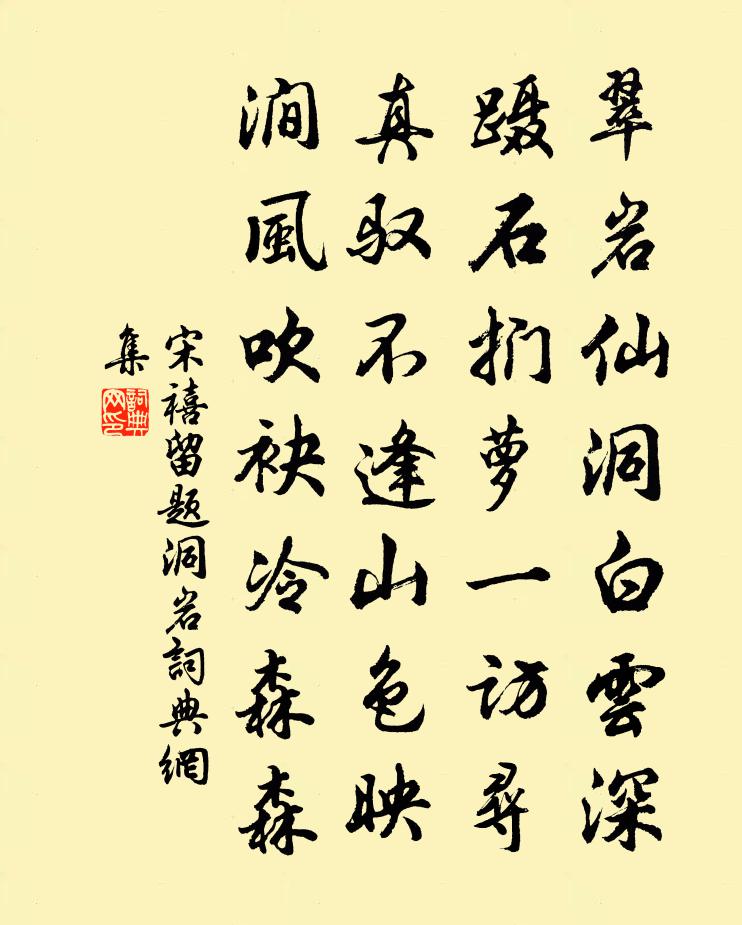 翠岩仙洞白雲深
蹑石捫萝一访尋
真驭不逢山色映
澗風吹袂冷森森
宋禧留题洞岩詞典網
集
詞典
网印